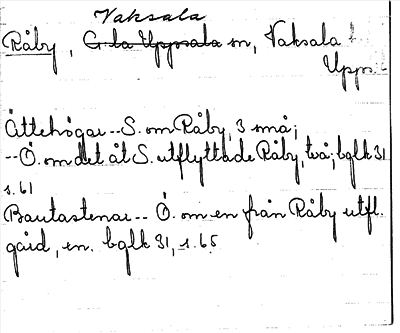 Vaksala
Råby, G-la Uppsala sn, Vaksala
Upps.
Ättehögar--S. om Råby, 3 små;
--Ö. om det åt S. utflyttade Råby, två; bglk 31
s. 61
Bautastenar-- Ö. om en från Råby utfl.
gård, en. bglk 31, s. 65